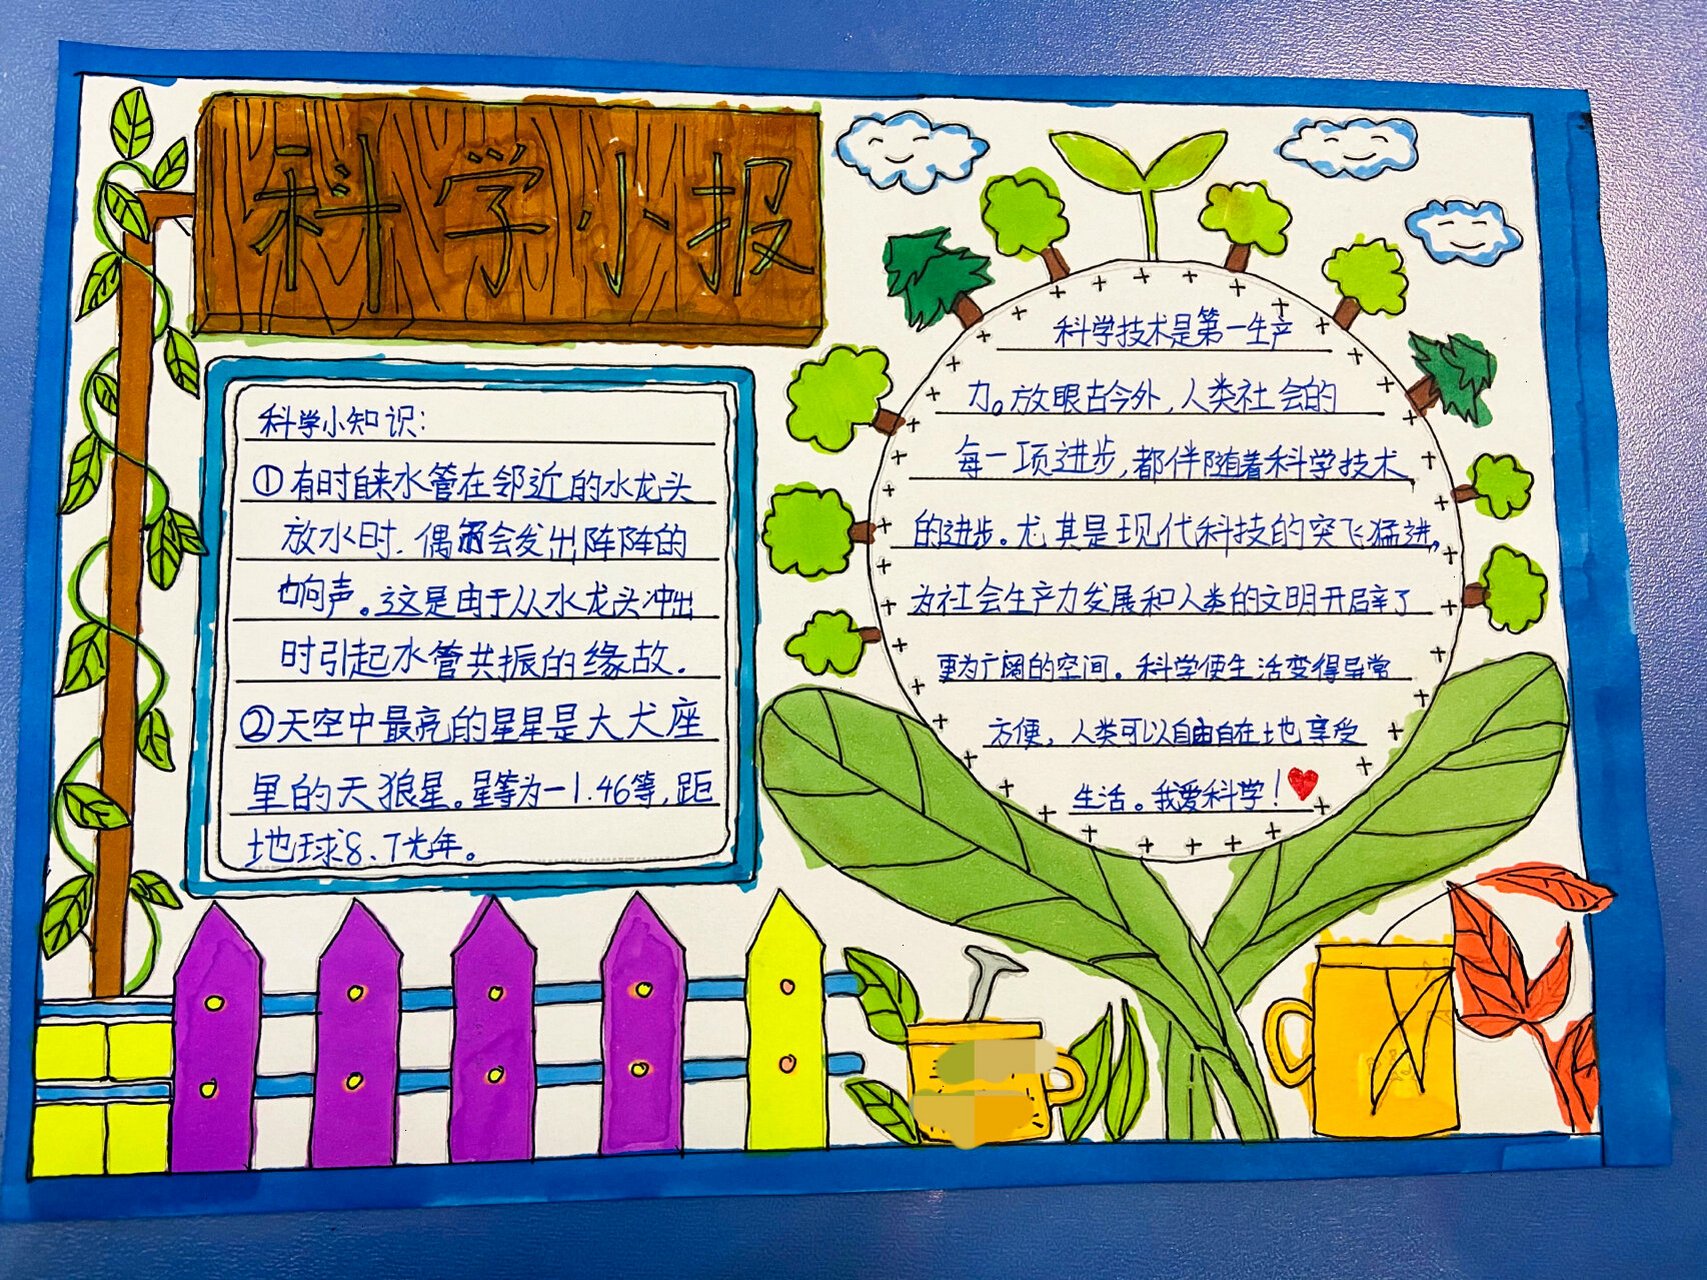 科学小报
科学小知识：
①有时自来水管在邻近的水龙头
放水时．偶尔会发出阵阵的
响声。这是由于从水龙头冲出
时引起水管共振的缘故．
②天空中最亮的星星是大犬座
里的天狼星。星等为－1.46等，距
地球8、7光年。
科学技术是第一生产
力。放眼古今外，人类社会的
每一项进步，都伴随着科学技术
的进步。尤其是现代科技的突飞猛进，
为社会生产力发展和人类的文明开启辛了
更为广阔的空间。科学使生活变得异常
方便，人类可以自由自在地享受
生活。我爱科学！